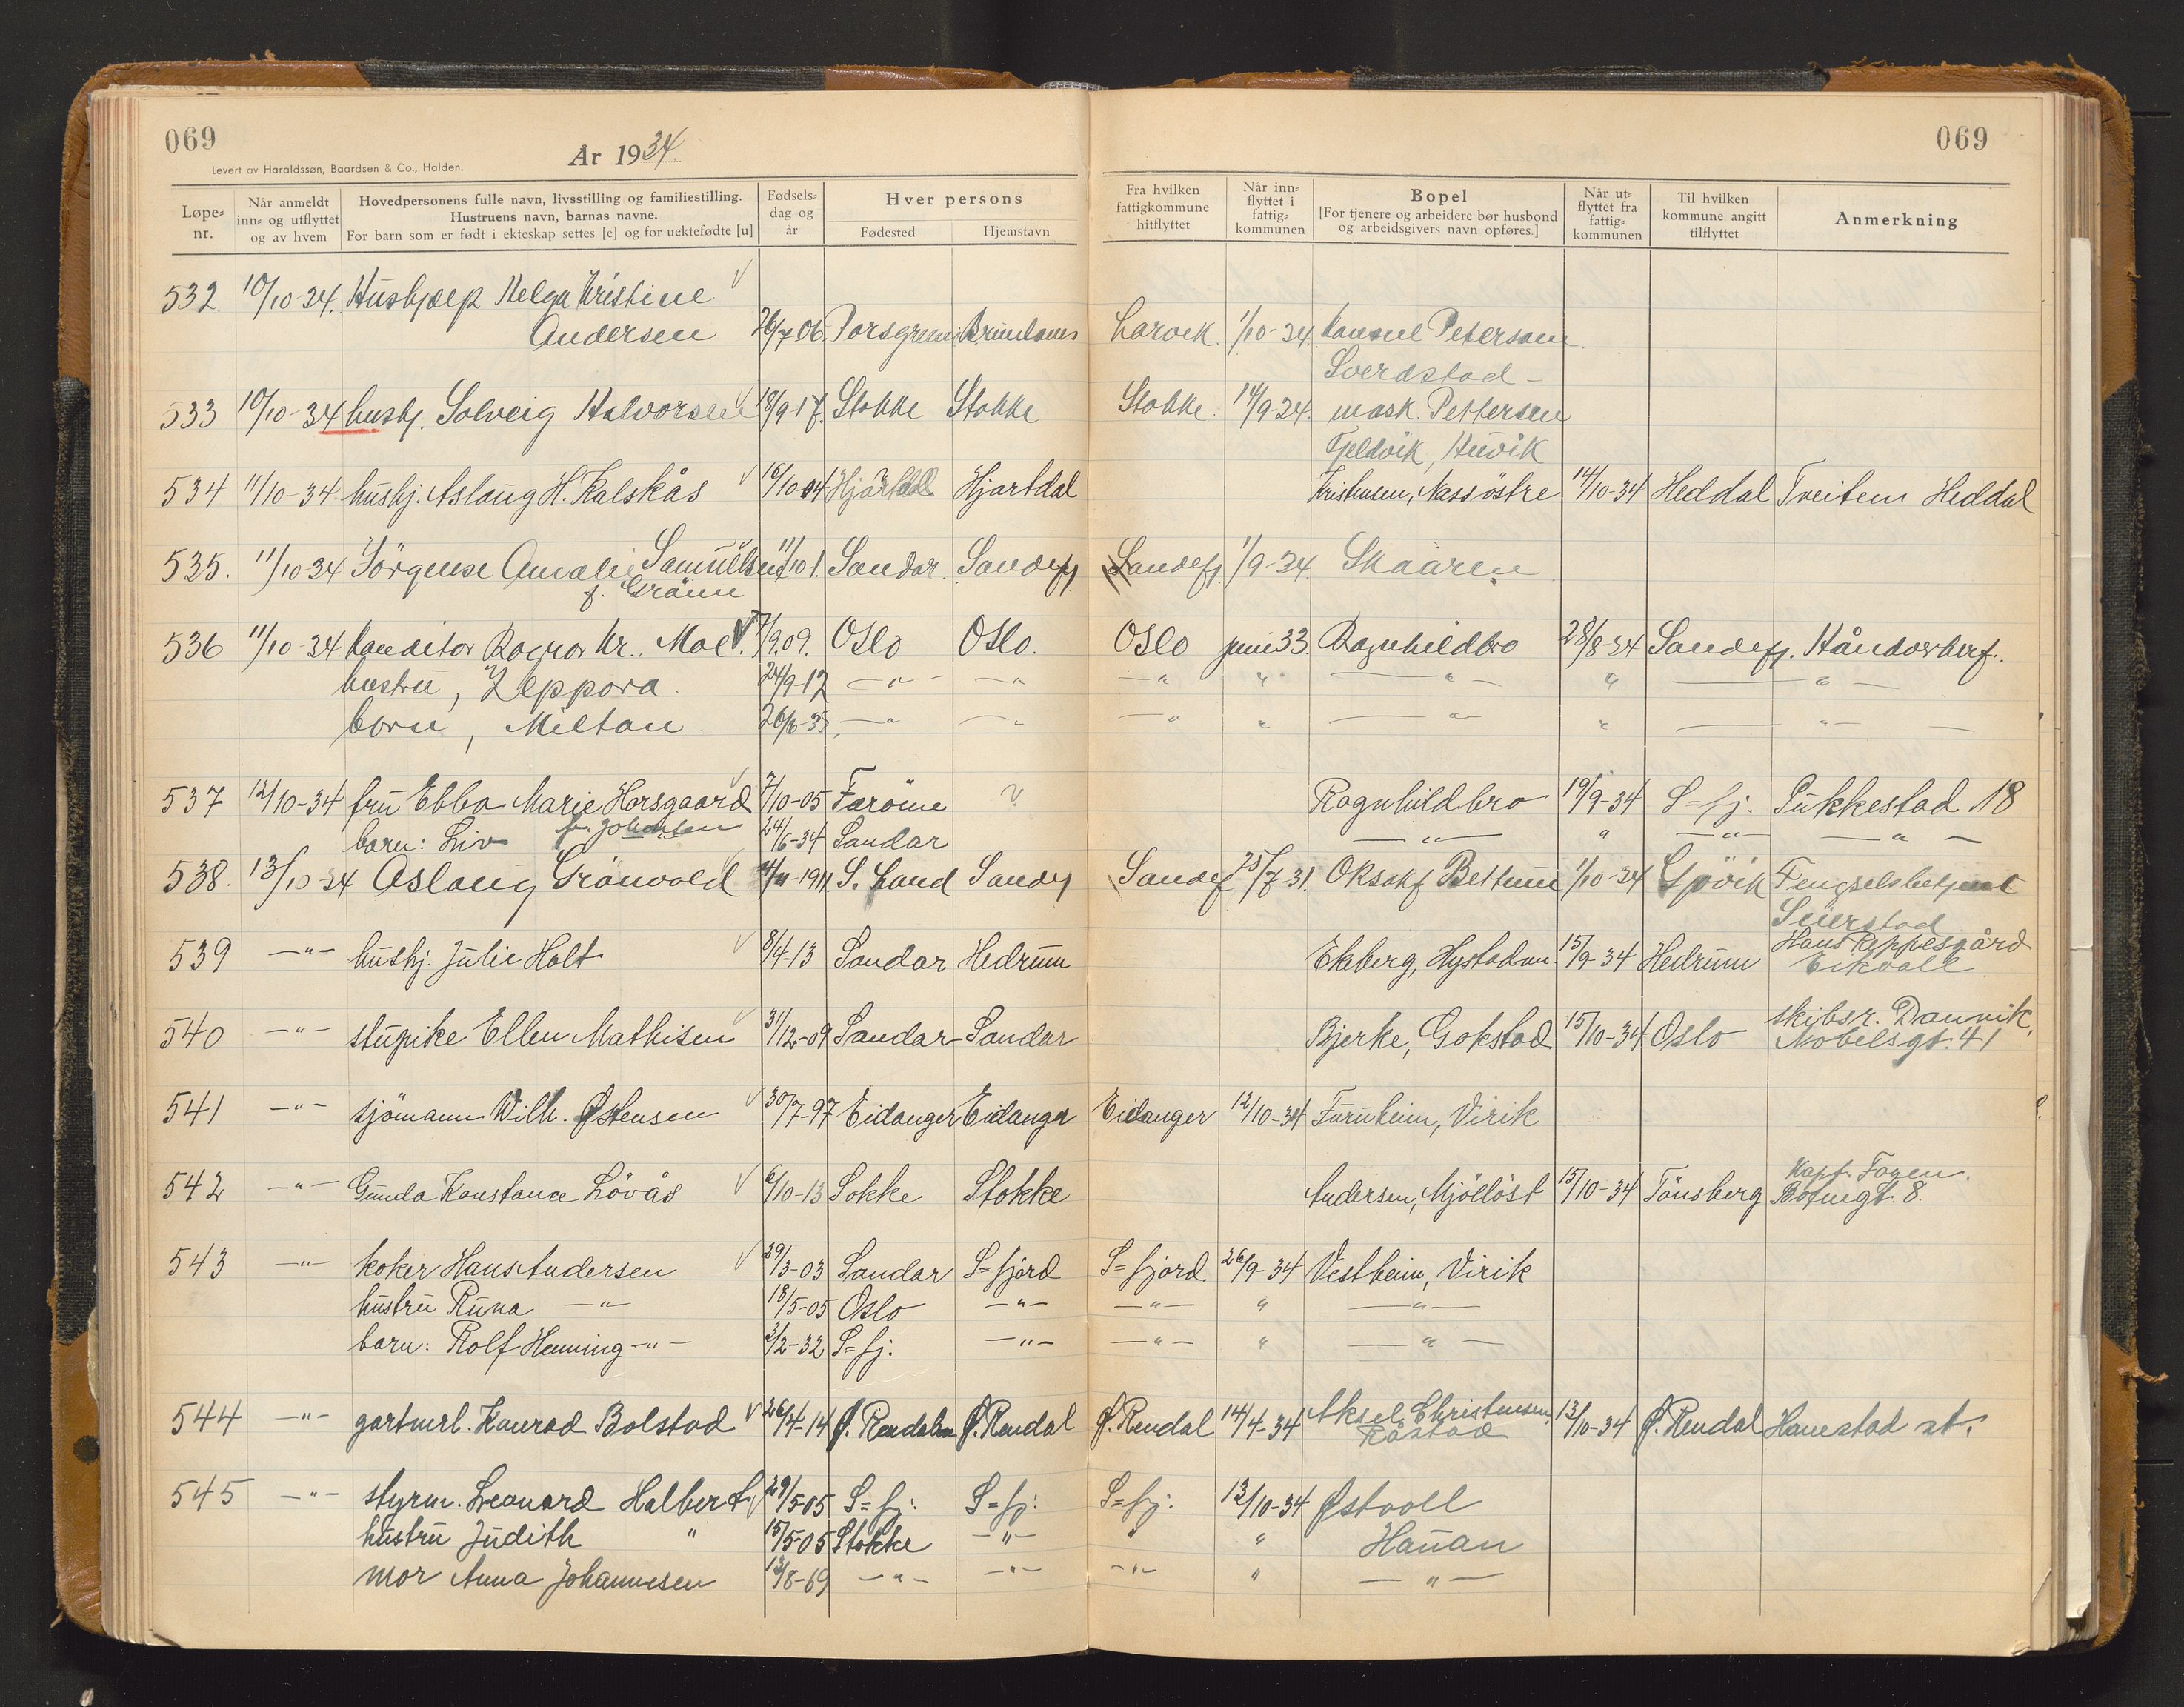 069
069
År 1934
Levert av Haraldssøn, Baardsen & Co., Halden.
Løpe-nr.
Når anmeldt inn- og utflyttet og av hvem
Hovedpersonens fulle navn, livsstilling og familiestilling.
Hustruens navn, barnas navne.
For barn som er født i ekteskap settes [e] og for uektefødte [u]
Fødsels-dag og år
Hver persons
Fødested
Hjemstavn
Fra hvilken fattigkommune hitflyttet
Når inn-flyttet i fattig-kommunen
Bopel
[For tjenere og arbeidere bør husbond og arbeidsgivers navn opføres.]
Når ut-flyttet fra fattig-kommunen
Til hvilken kommune angitt tilflyttet
Anmerkning
532 10/10-34. Hushjælp Helga Kristine
Andersen 26/7 06. Porsgrunn Brunlanes Larvik. 1/10-34. Konsul Petersen
Sverdstad-
533 10/10-34 hushj. Solveig Halvorsen 18/9-17. Stokke Stokke Stokke. 14/9 34. mask. Pettersen
Fjeldvik, Huvik
534 11/10-34. hushj. Aslaug H. Kalskås 16/10 04 Hjartdal Hjartdal Kristensen, Nessøstre 14/10-34 Heddal Tveiten Heddal
535. 11/10 34 Jörgense Amalie Samuelsen 11/10 1. Sandar. Sandefj. Sandefj. 1/9-34 Skaaren
f. Grönn
536 11/10-34 Konditor Ragnar Kr. Moe. 7/9.09. Oslo Oslo. Oslo juni 33. Ragnhildbro 28/8-34 Sandefj. Håndverkerf.
hustru, Zeppora. 24/9-12 -"- -"- -"- " -"- " -"-
barn, Milton 26/6-33 -"- -"- -"- " -"- " -"-
537 12/10-34 fru Ebba Marie Horsgaard 7/10-05 Faröne ? Ragnhildbro 19/9-34 S=fj. Pukkestad 18
f. Johansen
barn: Liv 24/6-34 Sandar -"- " -"- -"-
538. 13/10-34 Aslaug Grönvold 4/11-1911 S. Land Sandefj Sandef 25/7-31. Oksakf Bettum 1/10-34 Gjövik Fengselsbetjent
Seierstad
539 -"- hushj. Julie Holt 8/4-13 Sandar Hedrum Ekeberg, Hystadvn 15/9-34 Hedrum Hans Reppesgård
Eikvoll
540 -"- stupike Ellen Mathisen 31/12-09 Sandar-Sandar Bjerke, Gokstad 15/10-34 Oslo skibsr. Dannvik,
Nobelsgt. 41
541 -"- sjömann Wilh. Østensen 30/7-97 Eidanger Eidanger Eidanger 12/10-34 Furuheim, Virik
542 -"- Gunda Konstance Lövås 6/10-13 Sokke Stokke Andersen, Mjöllöst 15/10-34 Tönsberg Kapt. Foyen.
8.
543 -"- koker Hans Andersen 29/3-03 Sandar S=fjord S=fjord 26/9-34 Vestheim, Virik
hustru Runa -"- 18/5-05 Oslo -"- -"- " -"-
barn: Rolf Henning -"- 3/2-32 S=fj. -"- -"- " -"-
544 -"- gartnerl. Konrad Bolstad 26/4-14 Ø. Rendalen Ø. Rendal Ø. Rendal 14/4-34 Aksel Christensen
Råstad 13/10-34 Ø. Rendal Hanestad st.
545 -"- styrm. Leonard Halbert 29/5-05 S=fj. S=fj. S=fj. 12/10-34 Østvoll
hustru Judith " 15/5-05 Stokke -"- " " Hauan
mor Anna Johannesen 13/8-69 -"- -"- -"- " -"-